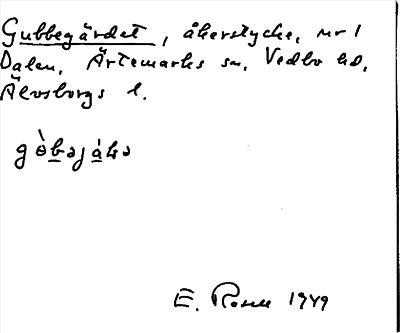 Gubbegärdet, åkerstycke, nr 1
Dalen, Ärtemarks sn, Vedbo hd,
Älvsborgs l.
E. Rosell 1949